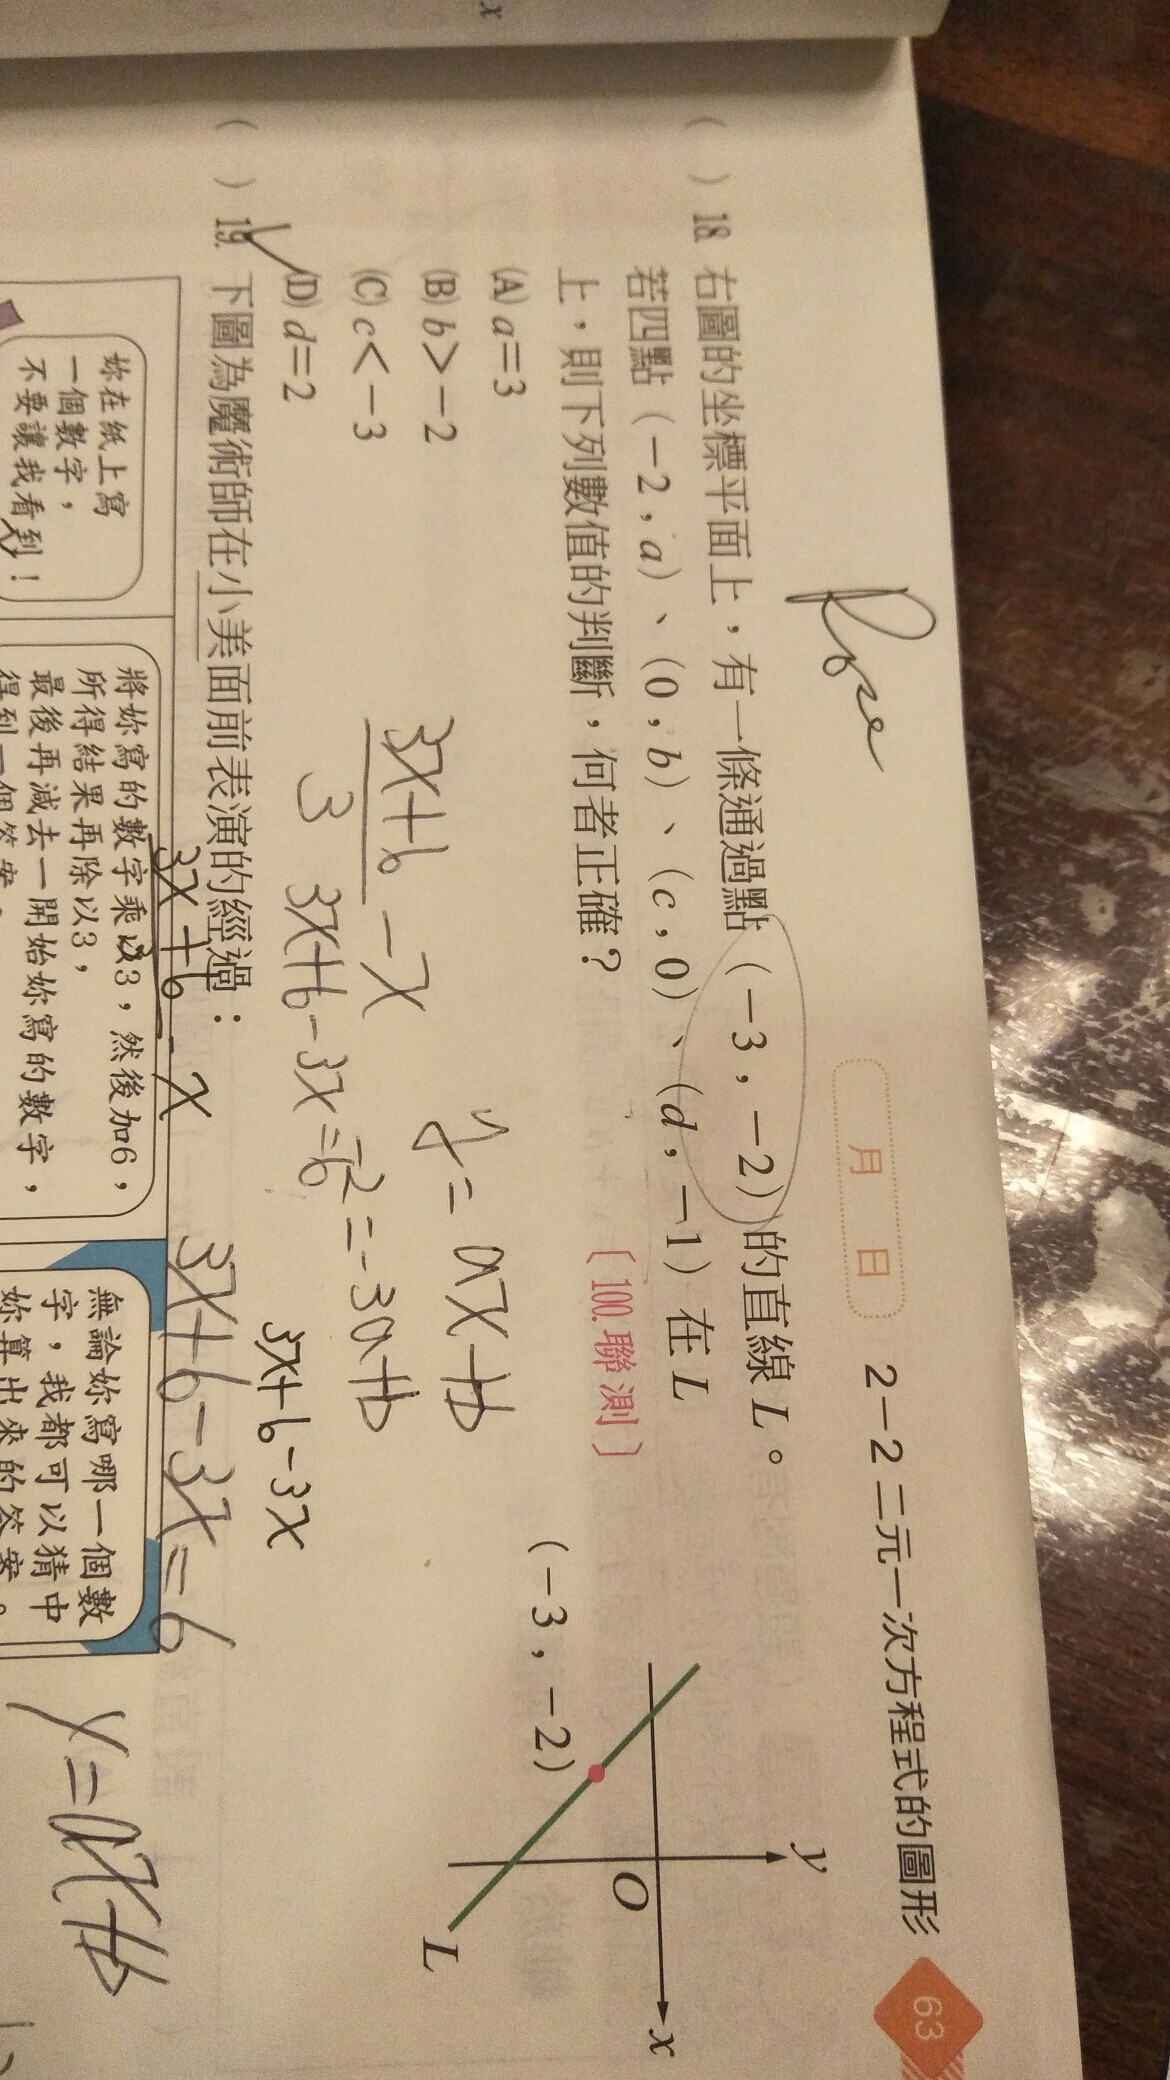 x
月 日
2-2 二元一次方程式的圖形
63
( ) 18. 右圖的坐標平面上，有一條通過點 (-3，-2) 的直線 L。
若四點 (-2，a)、(0，b)、(c，0)、(d，-1) 在 L
上，則下列數值的判斷，何者正確？
〔100.聯測〕
(A) a=3
(B) b>-2
(C) c<-3
(D) d=2
y
x
O
(-3，-2)
L
3x+6
3
-x
3x+6-3x=6
y=ax+b
-2=-3a+b
3x+6-3x
( ) 19. 下圖為魔術師在小美面前表演的經過：
3x+6
-x
3x+6-3x=6
妳在紙上寫
一個數字，
不要讓我看到！
將妳寫的數字乘以3，然後加6，
所得結果再除以3，
最後再減去一開始妳寫的數字，
得到一個答案。
無論妳寫哪一個數
字，我都可以猜中
妳算出來的答案。
y=ax+b